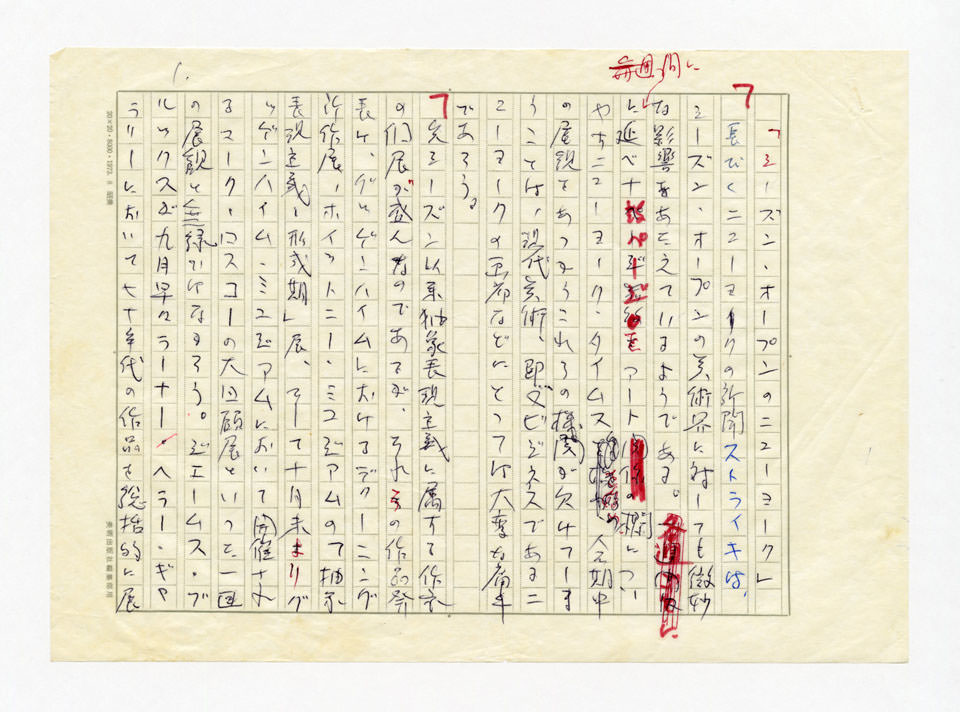 毎週間に
1.
「シーズン・オープンのニューヨーク」
長びくニューヨークの新聞ストライキは、
シーズン・オープンの美術界に対しても微妙
な影響をあたえているようである。
に延べ アート の欄につい
やすニューヨーク・タイムス 全期中
の展観であつかうこれらの機関が欠けてしま
うことは、現代美術、即ビジネスであるニ
ューヨークの画廊などにとっては大変な痛手
であろう。
先シーズン以来抽象表現主義に属する作家
の個展が盛んなのであるが、それらの作品発
表は、グッゲンハイムにおけるデクーニング
新作展、ホイットニー・ミュジアムの「抽象
表現主義・形成期」展、そして十月末よりグ
ッゲンハイム・ミュジアムにおいて開催され
るマーク・ロスコーの大回顧展といった一連
の展観と無縁ではなかろう。ジェームス・ブ
ルックスが九月早々ラーナー・ヘラー・ギャ
ラリーにおいて七十年代の作品を総括的に展
20×20・8000・1973. 8
美術出版社編集部用